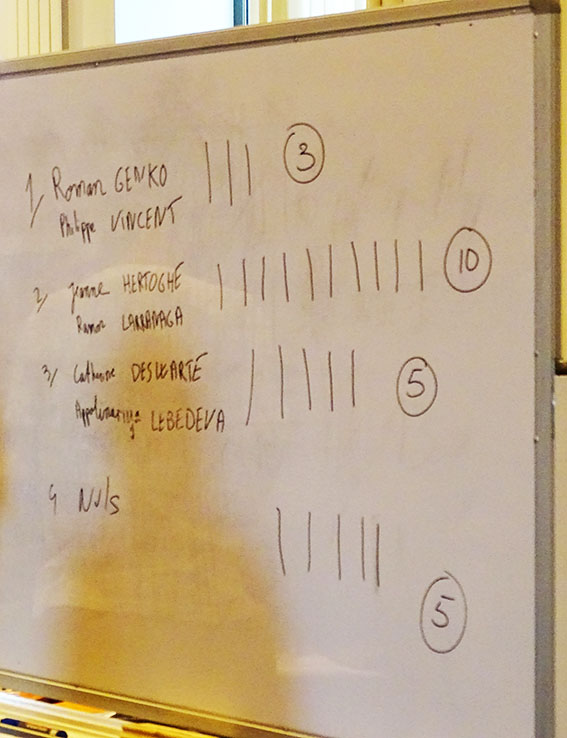 1/ Roman GENKO ||| 3
Philippe VINCENT
2/ Jeanne HERTOGHE |||||||||| 10
Ramon LARRANAGA
3/ Catherine ||||| 5
Appolinariya LEBEDEVA
4 Nuls ||||| 5